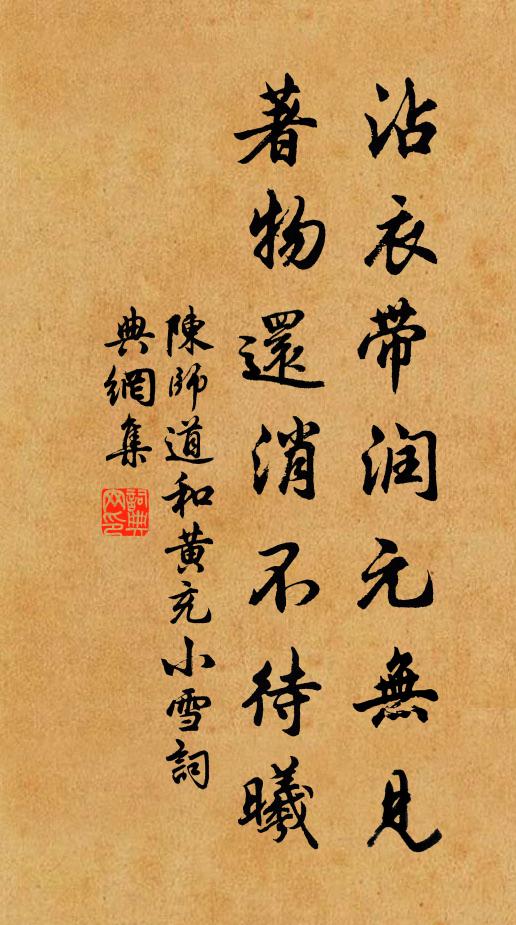 沾衣带润元無見
著物還消不待曦
陳師道和黄充小雪詞
典網集
詞典网印